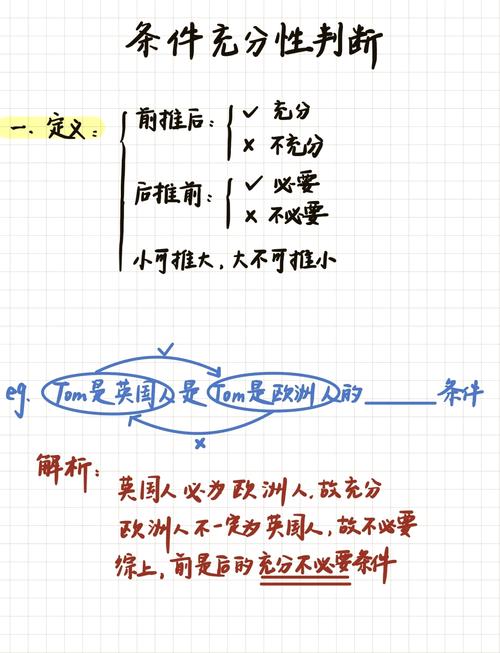 条件充分性判断
一、定义:
前推后: ✓ 充分
× 不充分
后推前: ✓ 必要
× 不必要
小可推大,大不可推小
✓
eg. Tom是英国人是Tom是欧洲人的______条件
×
解析:
英国人必为欧洲人,故充分
欧洲人不一定为英国人,故不必要
综上,前是后的充分不必要条件